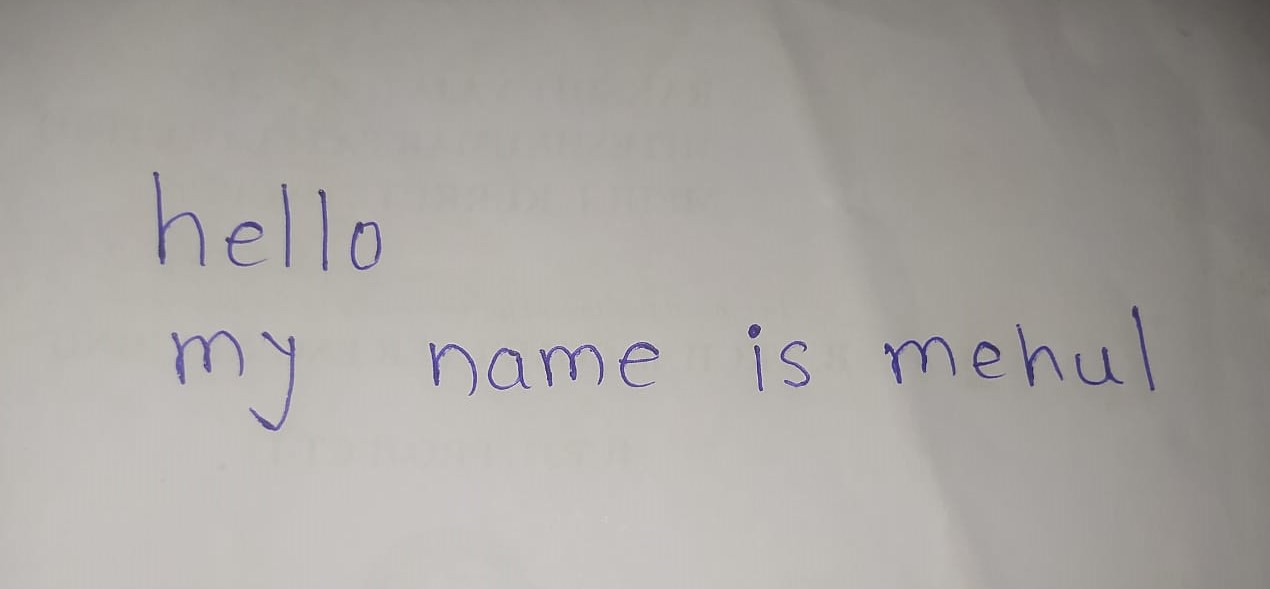 hello
my name is mehul